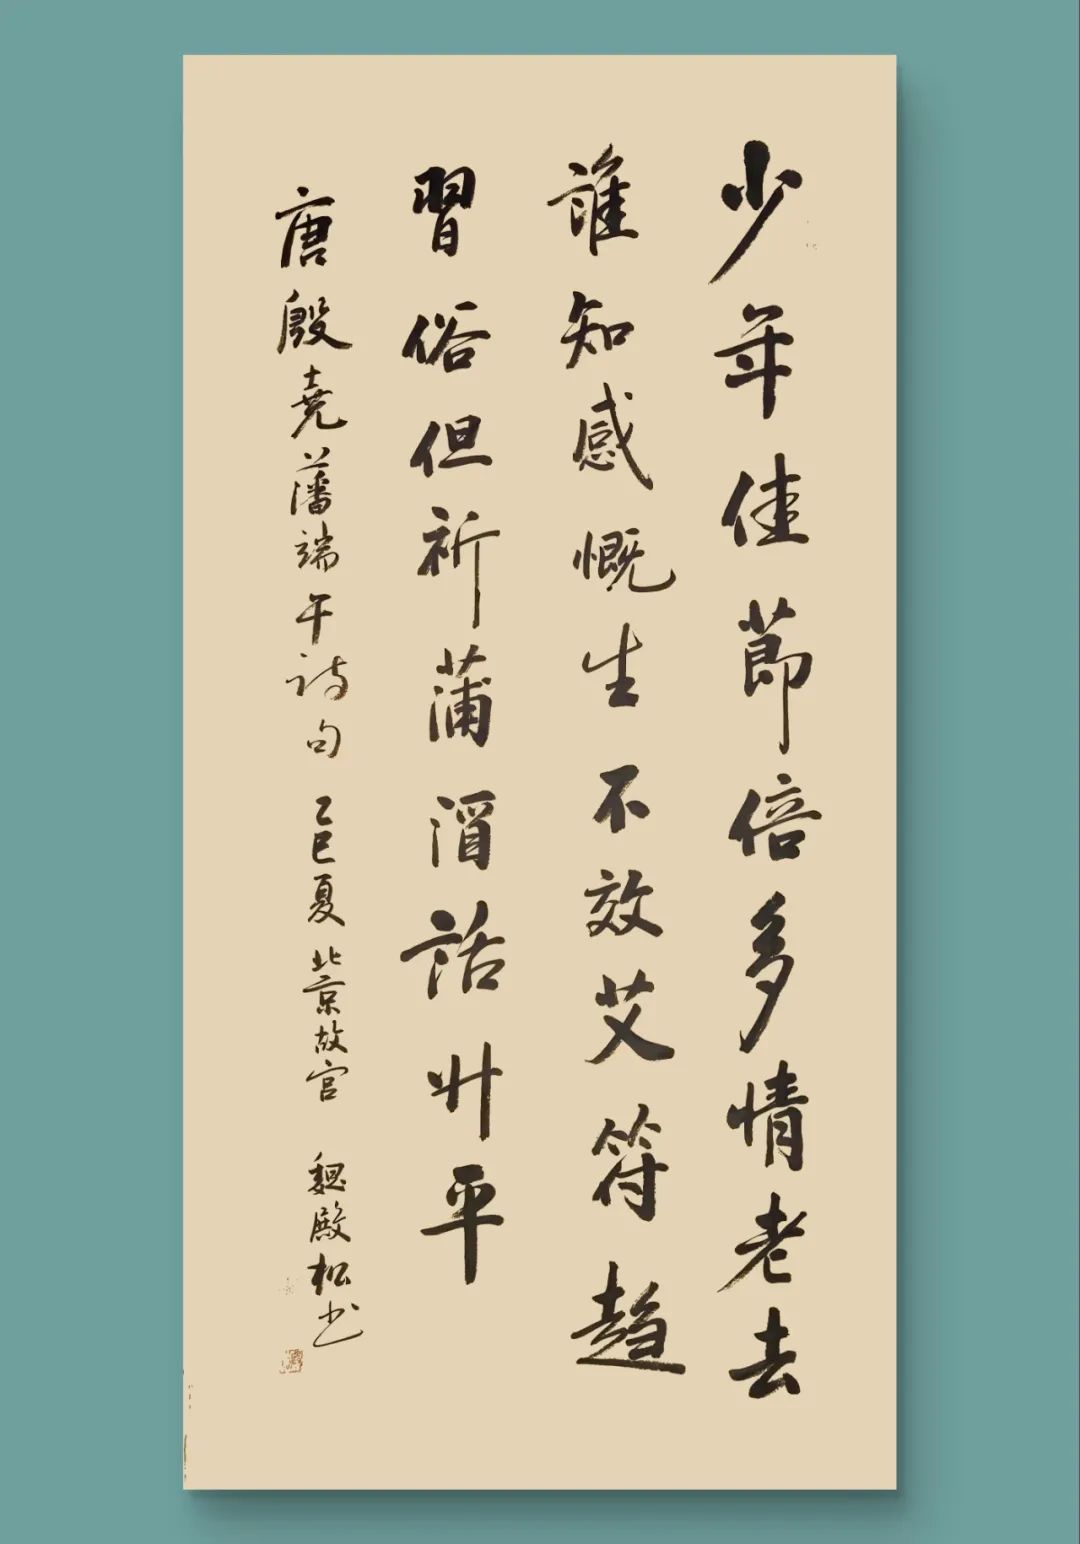 少年佳節倍多情老去
誰知感慨生不效艾符趨
習俗但祈蒲酒話升平
唐殷堯藩端午詩句 乙巳夏北京故宫 魏殿松书